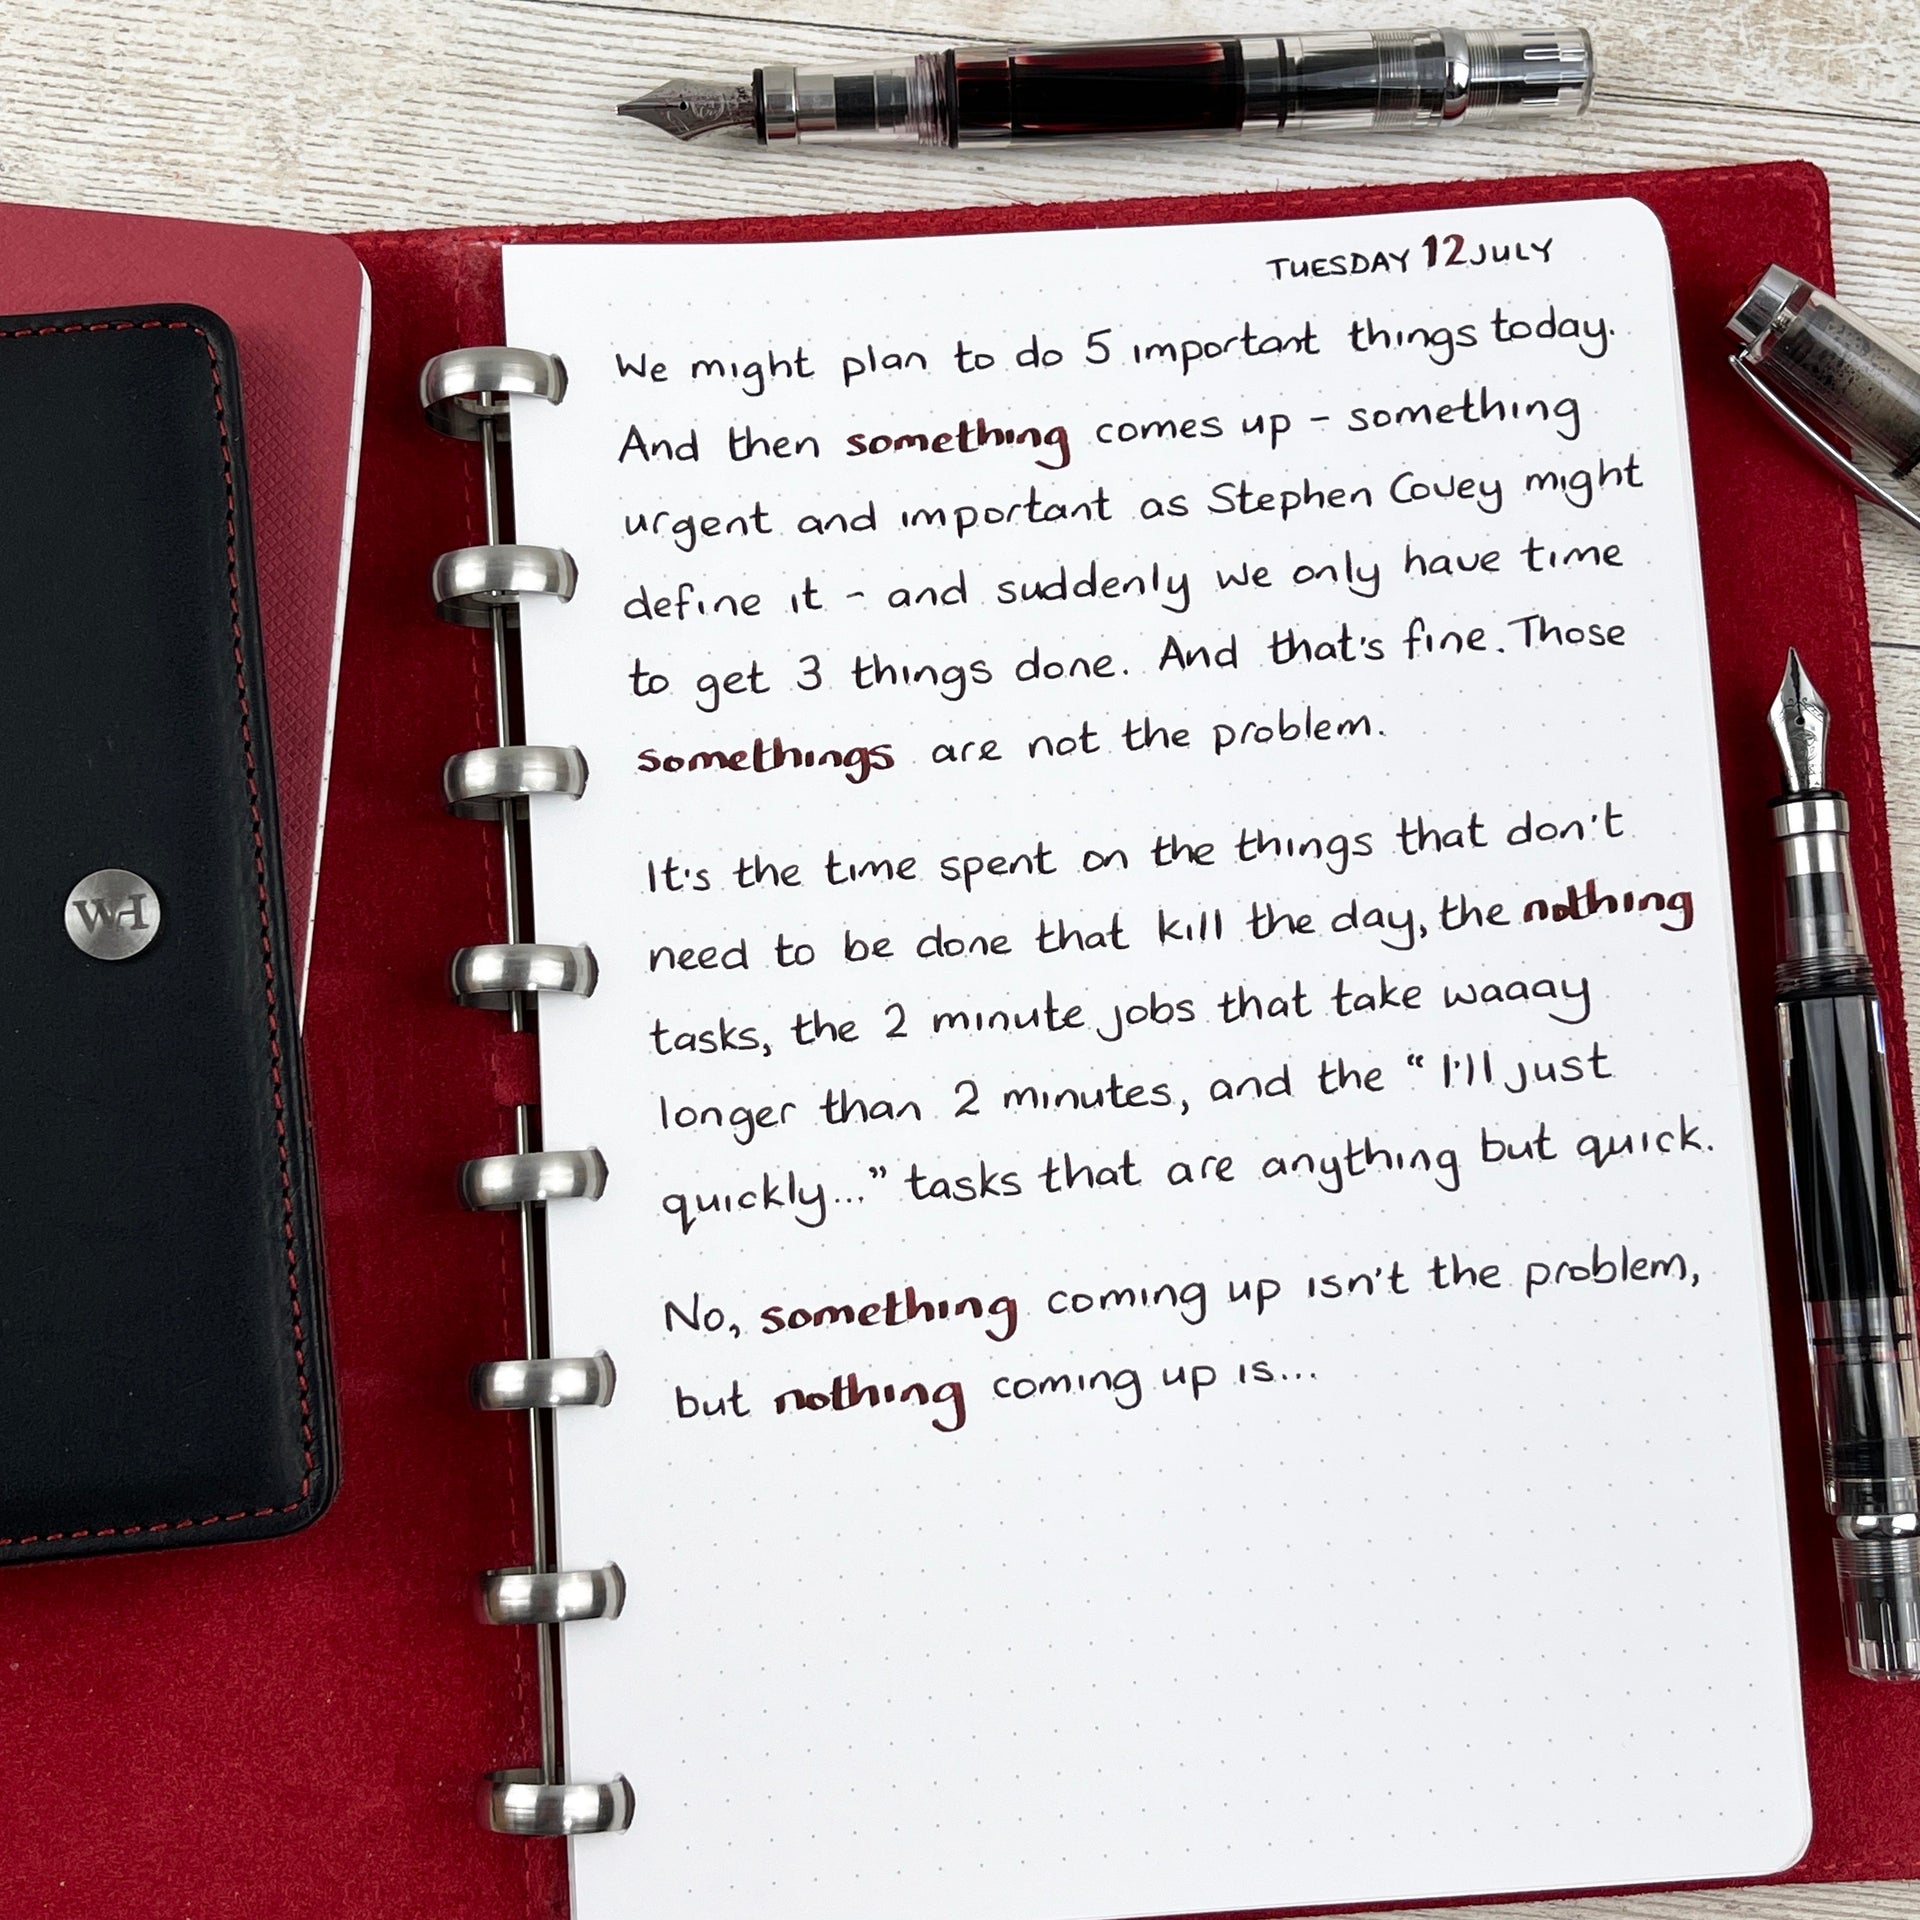 TUESDAY 12 JULY
We might plan to do 5 important things today.
And then something comes up - something
urgent and important as Stephen Covey might
define it - and suddenly we only have time
to get 3 things done. And that's fine. Those
somethings are not the problem.
It's the time spent on the things that don't
need to be done that kill the day, the nothing
tasks, the 2 minute jobs that take waaay
longer than 2 minutes, and the "I'll just
quickly..." tasks that are anything but quick.
No, something coming up isn't the problem,
but nothing coming up is...
WH